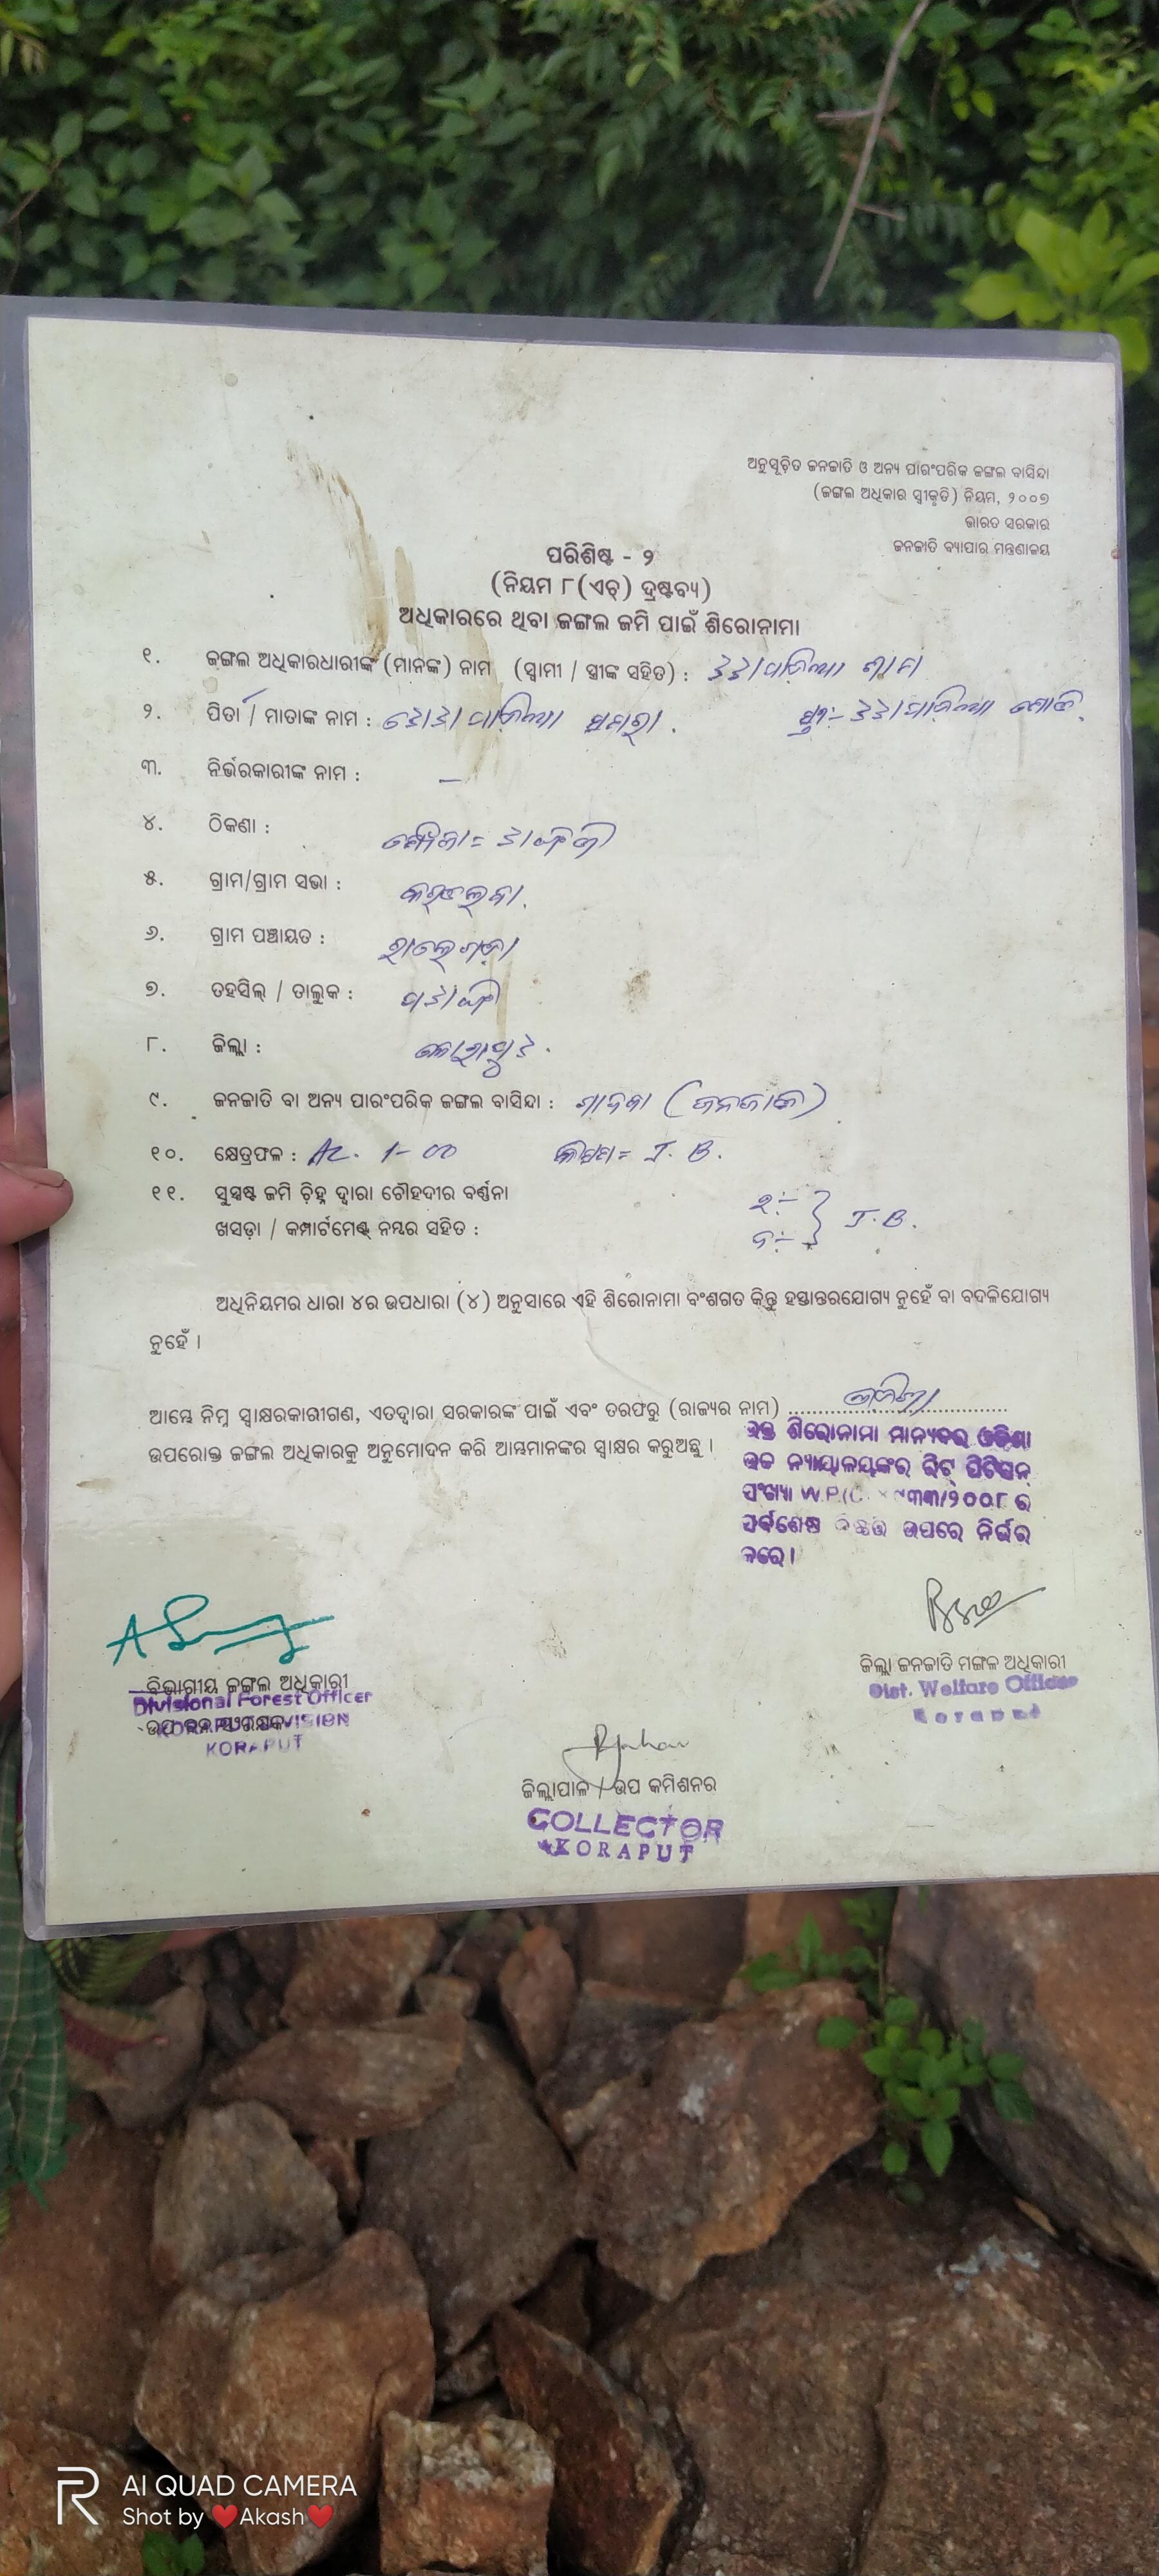 ଅନୁସୂଚିତ ଜନଜାତି ଓ ଅନ୍ୟ ପାରଂପରିକ ଜଙ୍ଗଲ ବାସିନ୍ଦା
(ଜଙ୍ଗଲ ଅଧିକାର ସ୍ବୀକୃତି) ନିୟମ, ୨୦୦୭
ଭାରତ ସରକାର
ଜନଜାତି ବ୍ୟାପାର ମନ୍ତ୍ରଣାଳୟ
ପରିଶିଷ୍ଟ - ୨
(ନିୟମ ୮(ଏଚ୍) ଦ୍ରଷ୍ଟବ୍ୟ)
ଅଧିକାରରେ ଥିବା ଜଙ୍ଗଲ ଜମି ପାଇଁ ଶିରୋନାମା
୧. ଜଙ୍ଗଲ ଅଧିକାରଧାରୀଙ୍କ (ମାନଙ୍କ) ନାମ (ସ୍ବାମୀ / ସ୍ତ୍ରୀଙ୍କ ସହିତ) :
୨. ପିତା / ମାତାଙ୍କ ନାମ :
୩. ନିର୍ଭରକାରୀଙ୍କ ନାମ : —
୪. ଠିକଣା :
୫. ଗ୍ରାମ/ଗ୍ରାମ ସଭା :
୬. ଗ୍ରାମ ପଞ୍ଚାୟତ :
୭. ତହସିଲ୍ / ତାଲୁକ :
୮. ଜିଲ୍ଲା : କୋରାପୁଟ.
୯. ଜନଜାତି ବା ଅନ୍ୟ ପାରଂପରିକ ଜଙ୍ଗଲ ବାସିନ୍ଦା : ଗାଦବା (ଜନଜାତି)
୧୦. କ୍ଷେତ୍ରଫଳ : Ac. 1-00 କିସମ= J. B.
୧୧. ସୁସ୍ପଷ୍ଟ ଜମି ଚିହ୍ନ ଦ୍ୱାରା ଚୌହଦୀର ବର୍ଣ୍ଣନା
ଖସଡ଼ା / କମ୍ପାର୍ଟମେଣ୍ଟ୍ ନମ୍ବର ସହିତ : J.B.
ଅଧିନିୟମର ଧାରା ୪ର ଉପଧାରା (୪) ଅନୁସାରେ ଏହି ଶିରୋନାମା ବଂଶଗତ କିନ୍ତୁ ହସ୍ତାନ୍ତରଯୋଗ୍ୟ ନୁହେଁ ବା ବଦଳିଯୋଗ୍ୟ
ନୁହେଁ ।
ଆମ୍ଭେ ନିମ୍ନ ସ୍ୱାକ୍ଷରକାରୀଗଣ, ଏତଦ୍ୱାରା ସରକାରଙ୍କ ପାଇଁ ଏବଂ ତରଫରୁ (ରାଜ୍ୟର ନାମ) ଓଡିଶା
ଉପରୋକ୍ତ ଜଙ୍ଗଲ ଅଧିକାରକୁ ଅନୁମୋଦନ କରି ଆମ୍ଭମାନଙ୍କର ସ୍ୱାକ୍ଷର କରୁଅଛୁ ।
ଉକ୍ତ ଶିରୋନାମା ମାନ୍ୟବର ଓଡିଶା
ଉଚ୍ଚ ନ୍ୟାୟାଳୟଙ୍କର ରିଟ୍ ପିଟିସନ୍
ସଂଖ୍ୟା W.P.(C. ୪୯୩୩/୨୦୦୮ ର
ସର୍ବଶେଷ ଉପରେ ନିର୍ଭର
କରେ ।
ବିଭାଗୀୟ ଜଙ୍ଗଲ ଅଧିକାରୀ
Divisional Forest Officer
KORAPUT DIVISION
KORAPUT
ଜିଲ୍ଲା ଜନଜାତି ମଙ୍ଗଳ ଅଧିକାରୀ
Dist. Welfare Officer
Koraput
ଜିଲ୍ଲାପାଳ / ଉପ କମିଶନର
COLLECTOR
KORAPUT
AI QUAD CAMERA
Shot by ❤️Akash❤️